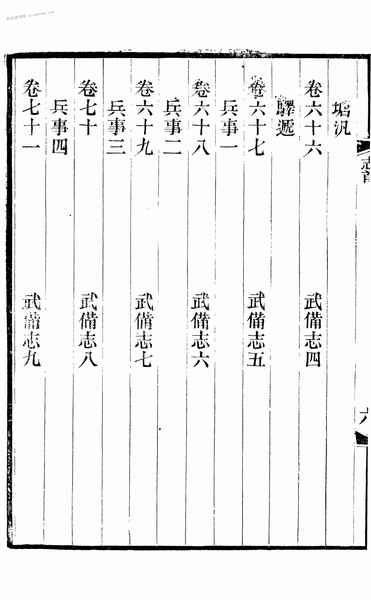 塘汛
卷六十六 武備志四
驛遞
卷六十七 武備志五
兵事一
卷六十八 武備志六
兵事二
卷六十九 武備志七
兵事三
卷七十 武備志八
兵事四
卷七十一 武備志九